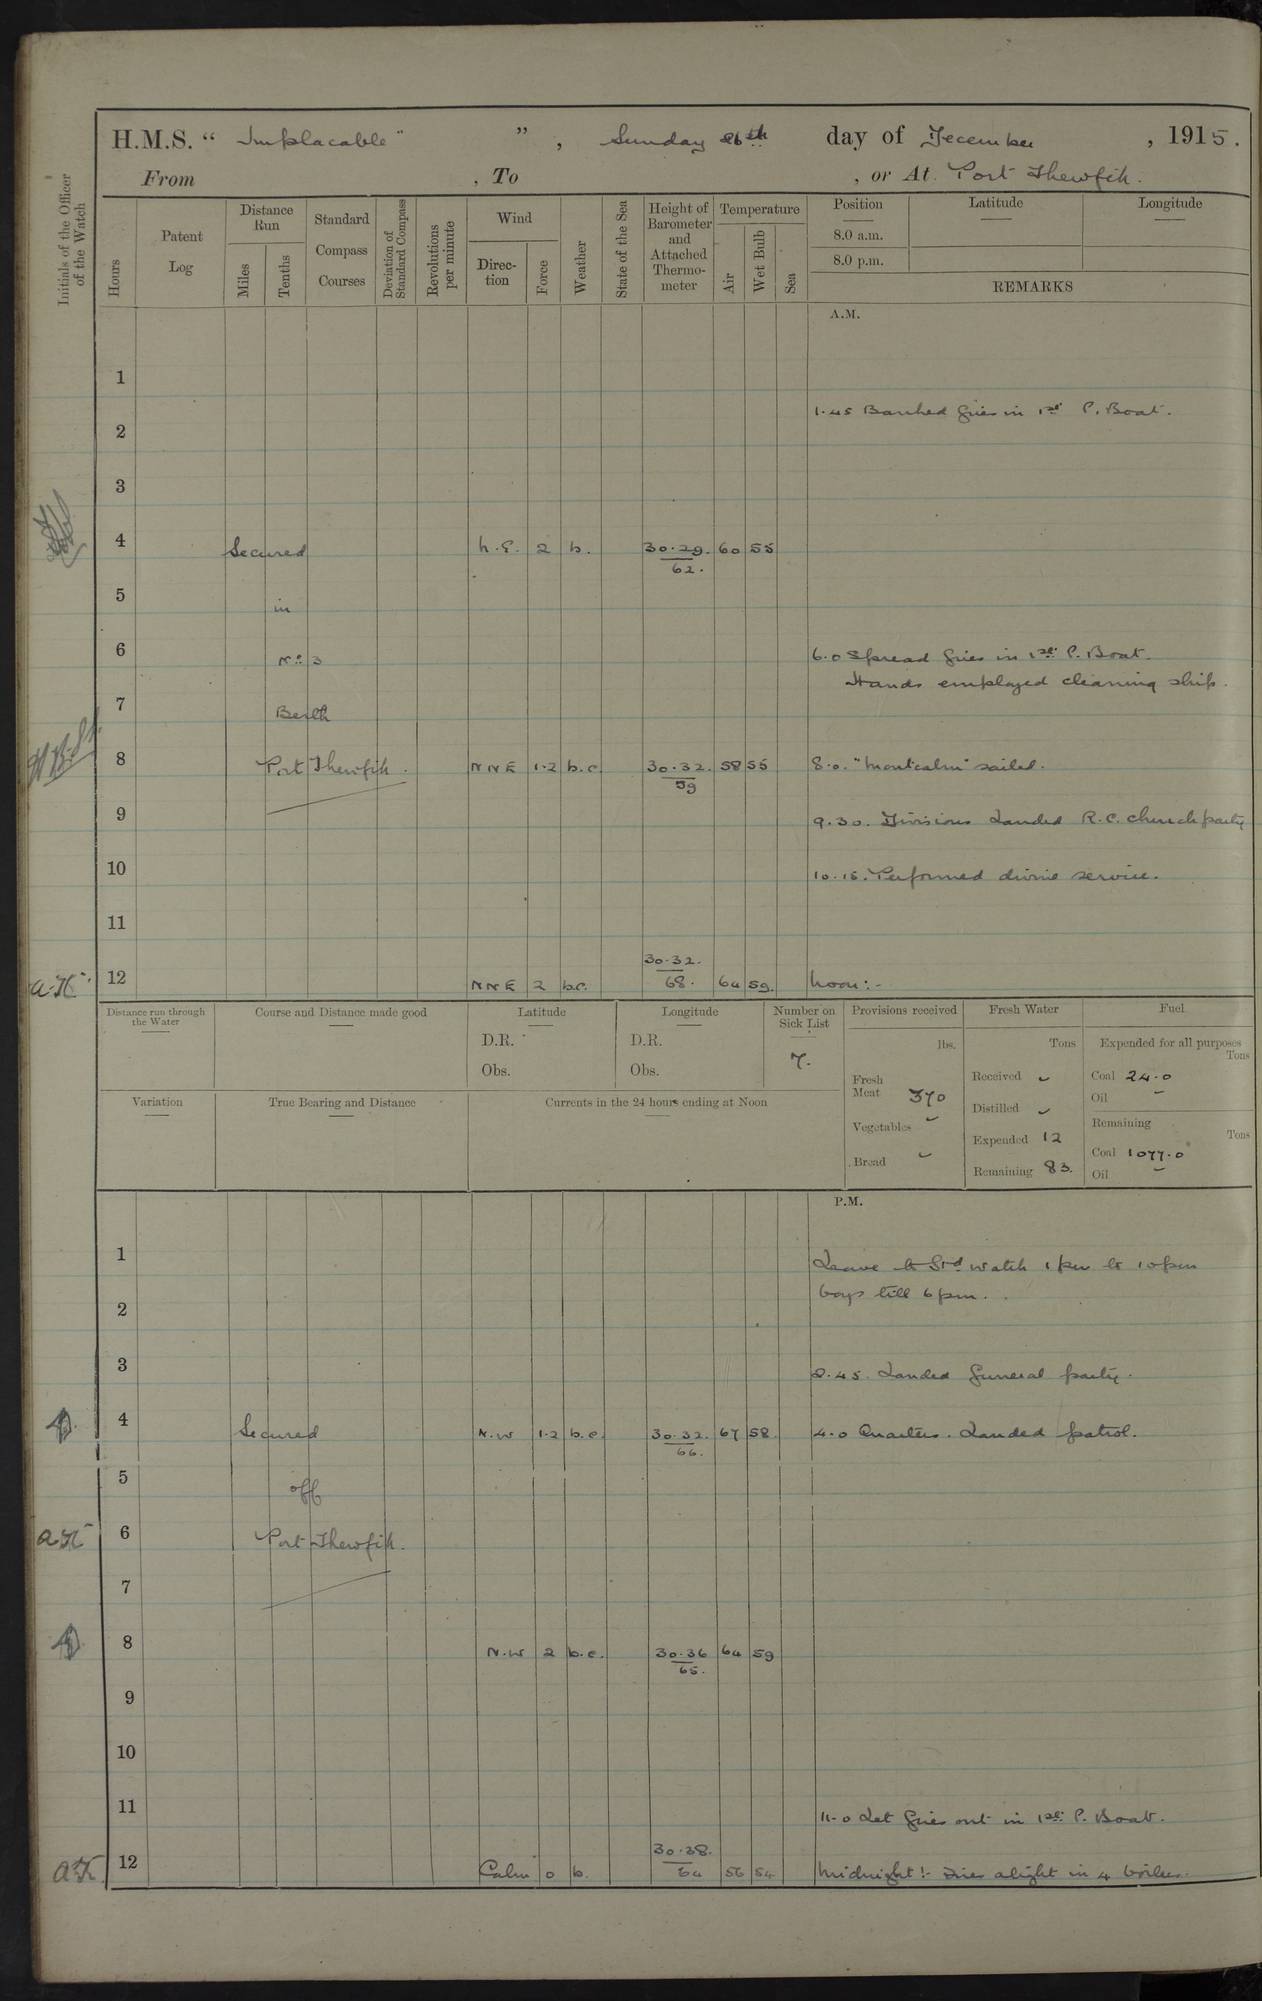 H.M.S. " Implacable " ", Sunday 26th day of December, 1915.
From , To , or At Port Thewfik.
Initials of the Officer of the Watch
Hours
Patent Log
Distance Run
Miles
Tenths
Standard Compass Courses
Deviation of Standard Compass
Revolutions per minute
Wind
Direction
Force
Weather
State of the Sea
Height of Barometer and Attached Thermometer
Temperature
Air
Wet Bulb
Sea
Position
Latitude
Longitude
8.0 a.m.
8.0 p.m.
REMARKS
A.M.
1
1.45 Banked fires in 1st P. Boat.
2
3
4 Secured N.E. 2 b. 30.29. 60 55
62.
5 in
6 No. 3 6.0 Spread fires in 1st P. Boat.
Hands employed cleaning ship.
7 Berth
8 Port Thewfik. NNE 1.2 b.c. 30.32. 58 55 8.0. "Montcalm" sailed.
59
9 9.30. Divisions Landed R.C. church party
10 10.15. Performed divine service.
11
30.32.
a.K. 12 NNE 2 b.c. 68. 64 59. Noon:-
Distance run through the Water
Course and Distance made good
Latitude
D.R.
Obs.
Longitude
D.R.
Obs.
Number on Sick List
7.
Provisions received
lbs.
Fresh Meat 370
Vegetables -
Bread -
Fresh Water
Tons
Received -
Distilled -
Expended 12
Remaining 83.
Fuel
Expended for all purposes
Tons
Coal 24.0
Oil -
Remaining
Tons
Coal 1077.0
Oil -
Variation
True Bearing and Distance
Currents in the 24 hours ending at Noon
P.M.
1 Leave to 3rd watch 1 pm to 10 pm
boys till 6 pm.
2
3 2.45. Landed funeral party.
4 Secured N.W 1.2 b.c. 30.32. 67 58. 4.0 Quarters. Landed patrol.
66.
5 off
a.K 6 Port Thewfik.
7
8 N.W 2 b.c. 30.36 64 59
65.
9
10
11 11.0 Let fires out in 1st P. Boat.
30.38.
a.K. 12 Calm 0 b. 64 56 54 Midnight:- Fires alight in 4 boilers.